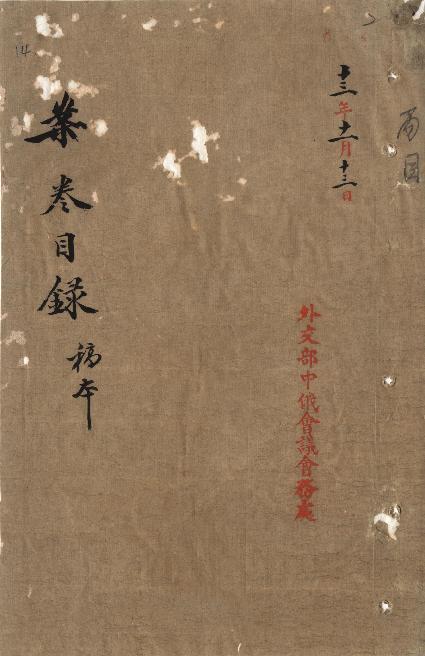 十三年十一月十三日
外交部中俄會議會務處
案卷目錄 稿本
14